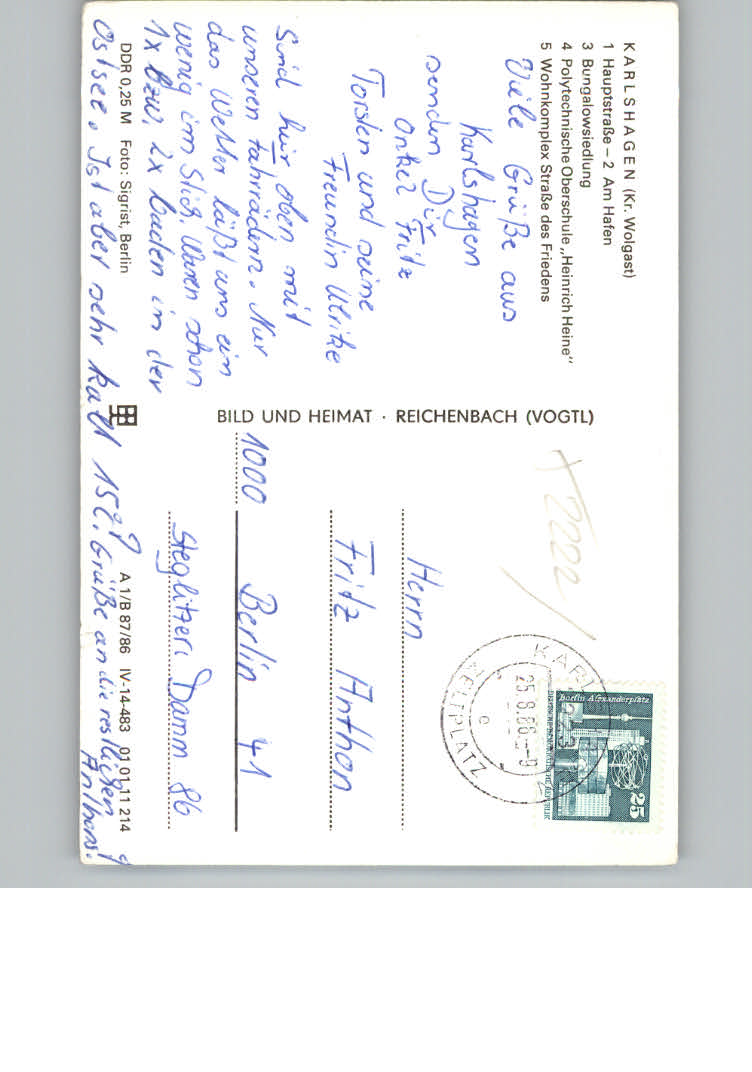 KARLSHAGEN (Kr. Wolgast)
1 Hauptstraße – 2 Am Hafen
3 Bungalowsiedlung
4 Polytechnische Oberschule „Heinrich Heine"
5 Wohnkomplex Straße des Friedens
Viele Grüße aus
Karlshagen
senden Dir
Onkel Fritz
Torsten und seine
Freundin Ulrike
Sind hier oben mit
unseren Fahrrädern. Nur
das Wetter läßt uns ein
wenig im Stich. Waren schon
1x bzw. 2x baden in der
Ostsee. Ist aber sehr kalt 15°C. Grüße an die restlichen
Anthons.
DDR 0,25 M Foto: Sigrist, Berlin
BILD UND HEIMAT · REICHENBACH (VOGTL)
A 1/B 87/86 IV-14-483 01 01 11 214
Berlin Alexanderplatz
25
KARL
2223
25.8.86–9
e
ZELTPLATZ
Herrn
Fritz Anthon
1000 Berlin 41
Steglitzer Damm 86